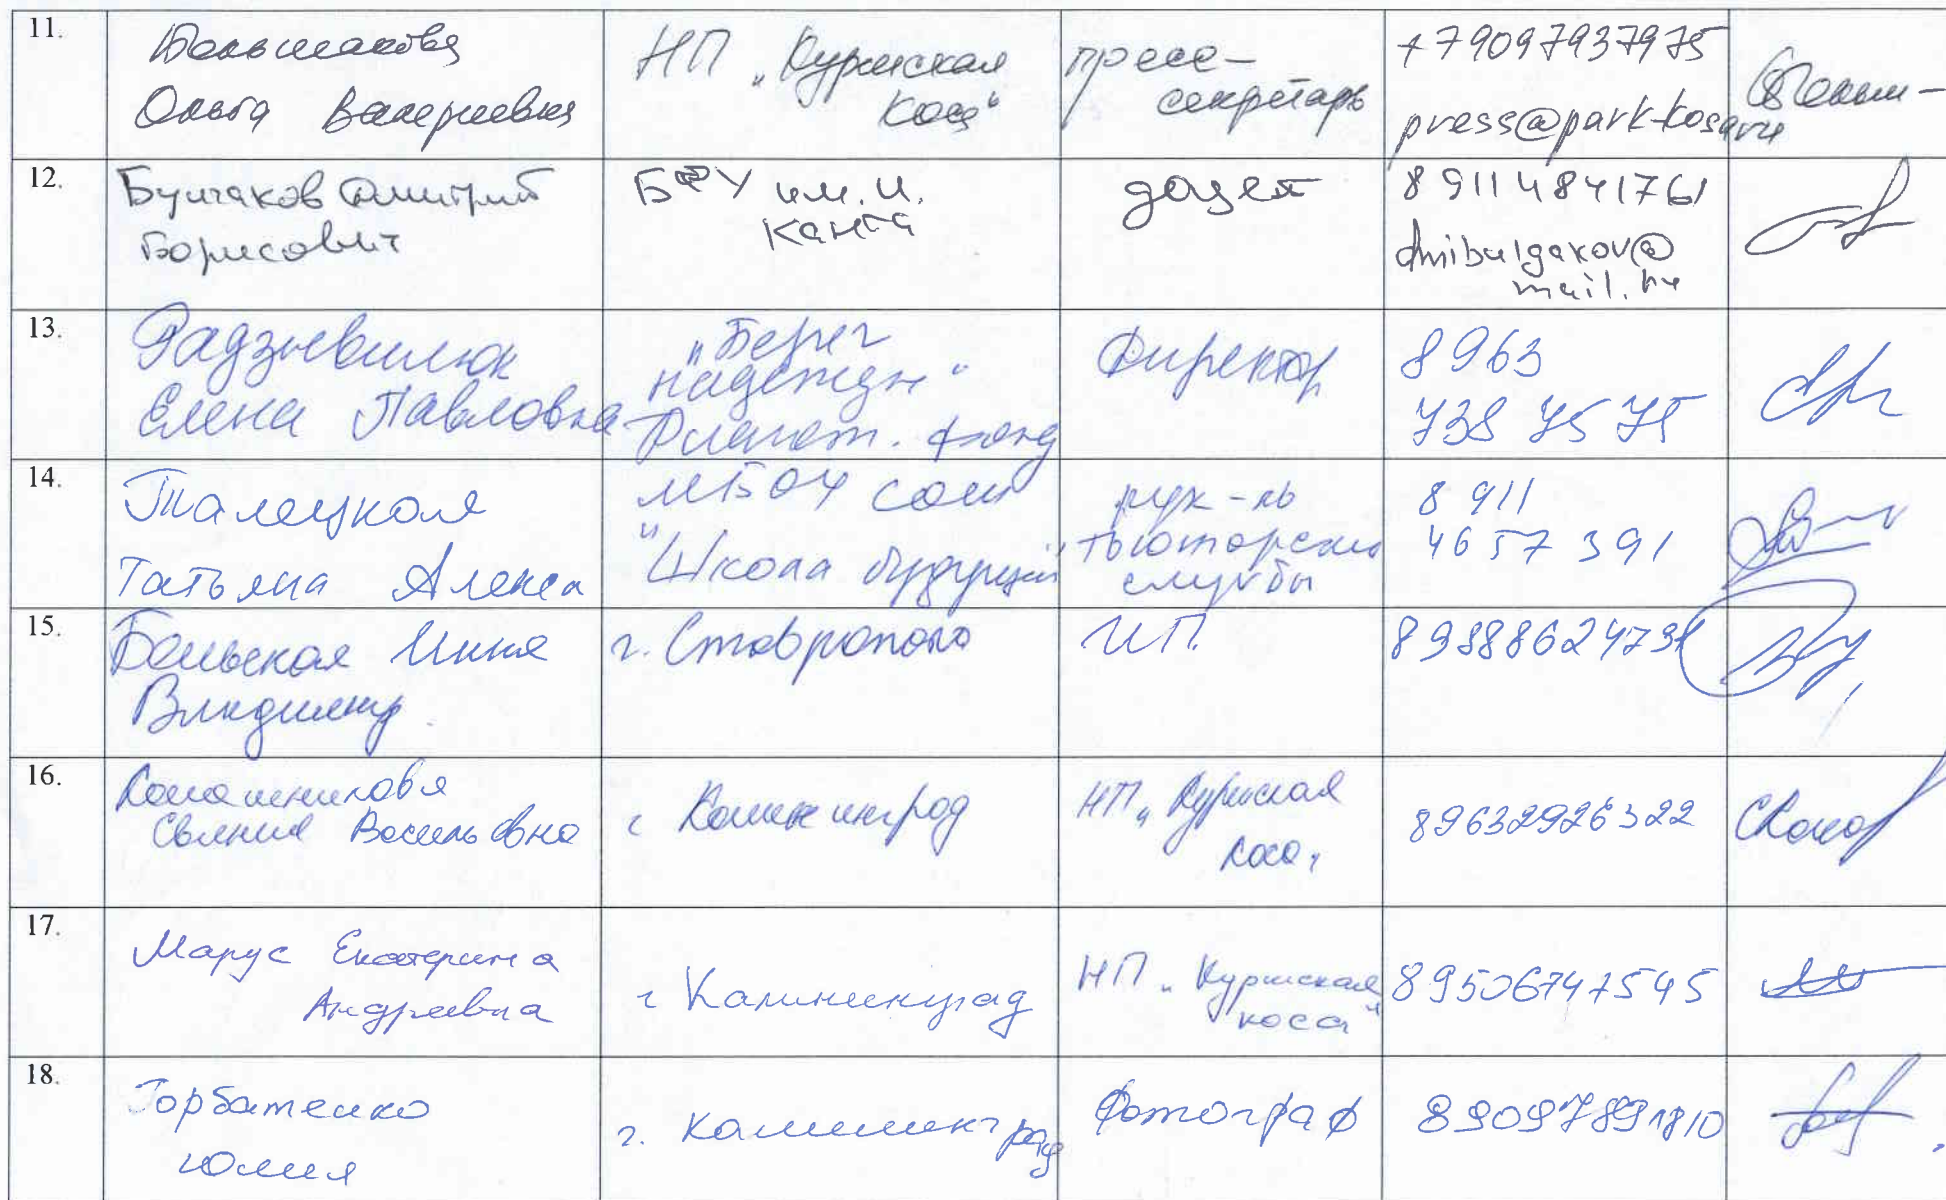 11.
Большакова
Ольга Валериевна
НП „Куршская
коса“
пресс-
секретарь
+79097937975
press@park-kosa.ru
12.
Булгаков Дмитрий
Борисович
БФУ им. И.
Канта
доцент
8 911 4841761
dmibulgakov@
mail.ru
13.
Радзиевилюк
Елена Павловна
„Берег
надежды“
Благот. фонд
Директор
8 963
738 75 75
14.
Талецкая
Татьяна Алекса
МБОУ сош
"Школа будущего"
рук-ль
тьюторской
службы
8 911
46 57 391
15.
Бельская Инна
Владимир
г. Ставрополь
ИП.
16.
Васильевна
г Калининград
НП „Куршская
коса„
89632926322
17.
Марус Екатерина
Андреевна
г Калининград
НП „Куршская
коса“
89506747545
18.
Горбатенко
Юлия
г. Калининград
Фотограф